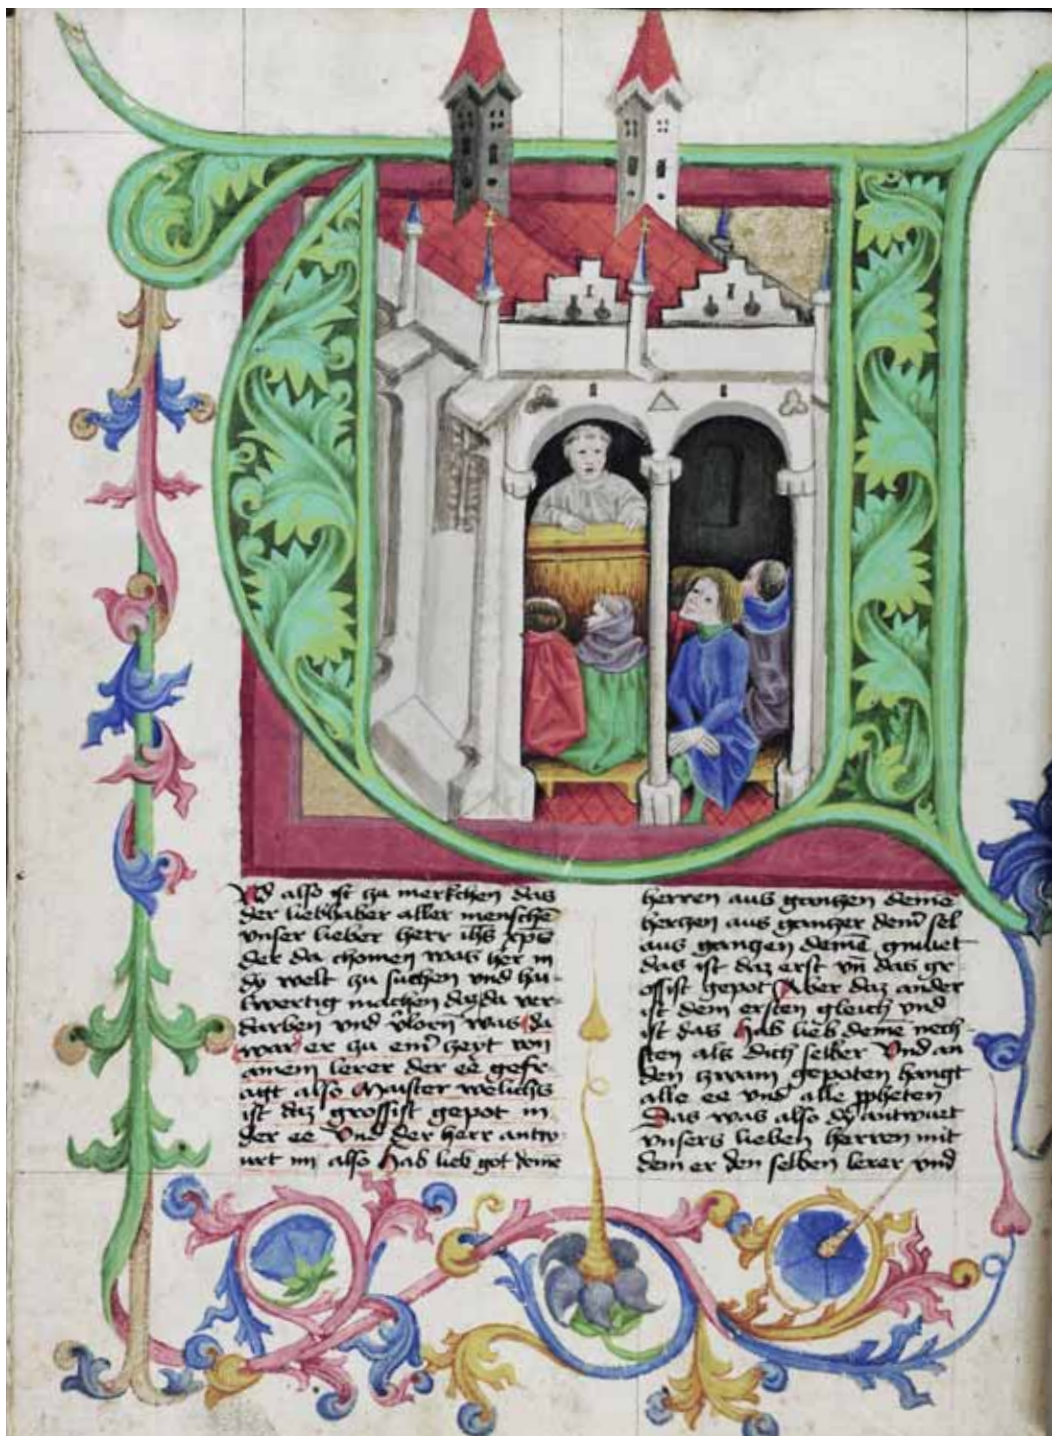 Vnd also ist zu merkchen das
der liebhaber aller mensche͂
vnser lieber herr ihs xp̄s
der da chomen was her in
dy welt zu suchen vnd hai-
lwertig machen daz da ver-
darben vnd v̓lorn was da
war er zu eim̄ zeyt von
ainem lerer der ee gefr-
agt also Maister welichs
ist daz grossist gepot in
der ee Vnd der herr antw-
urt im also Hab lieb got deine͂
herren aus ganczen deine͂
herczen aus ganczer deinr̄ sel
aus ganczen deine͂ gmuet
das ist daz erst vn̄ das gr-
ossist gepot Aber daz ander
ist dem ersten gleich vnd
ist das Hab lieb deine͂ nech-
sten als dich selber Vnd an
den zwain gepoten hangt
alle ee vnd alle ꝓpheten
Das was also dy antwurt
vnsers lieben herren mit
dem er den selben lerer vnd